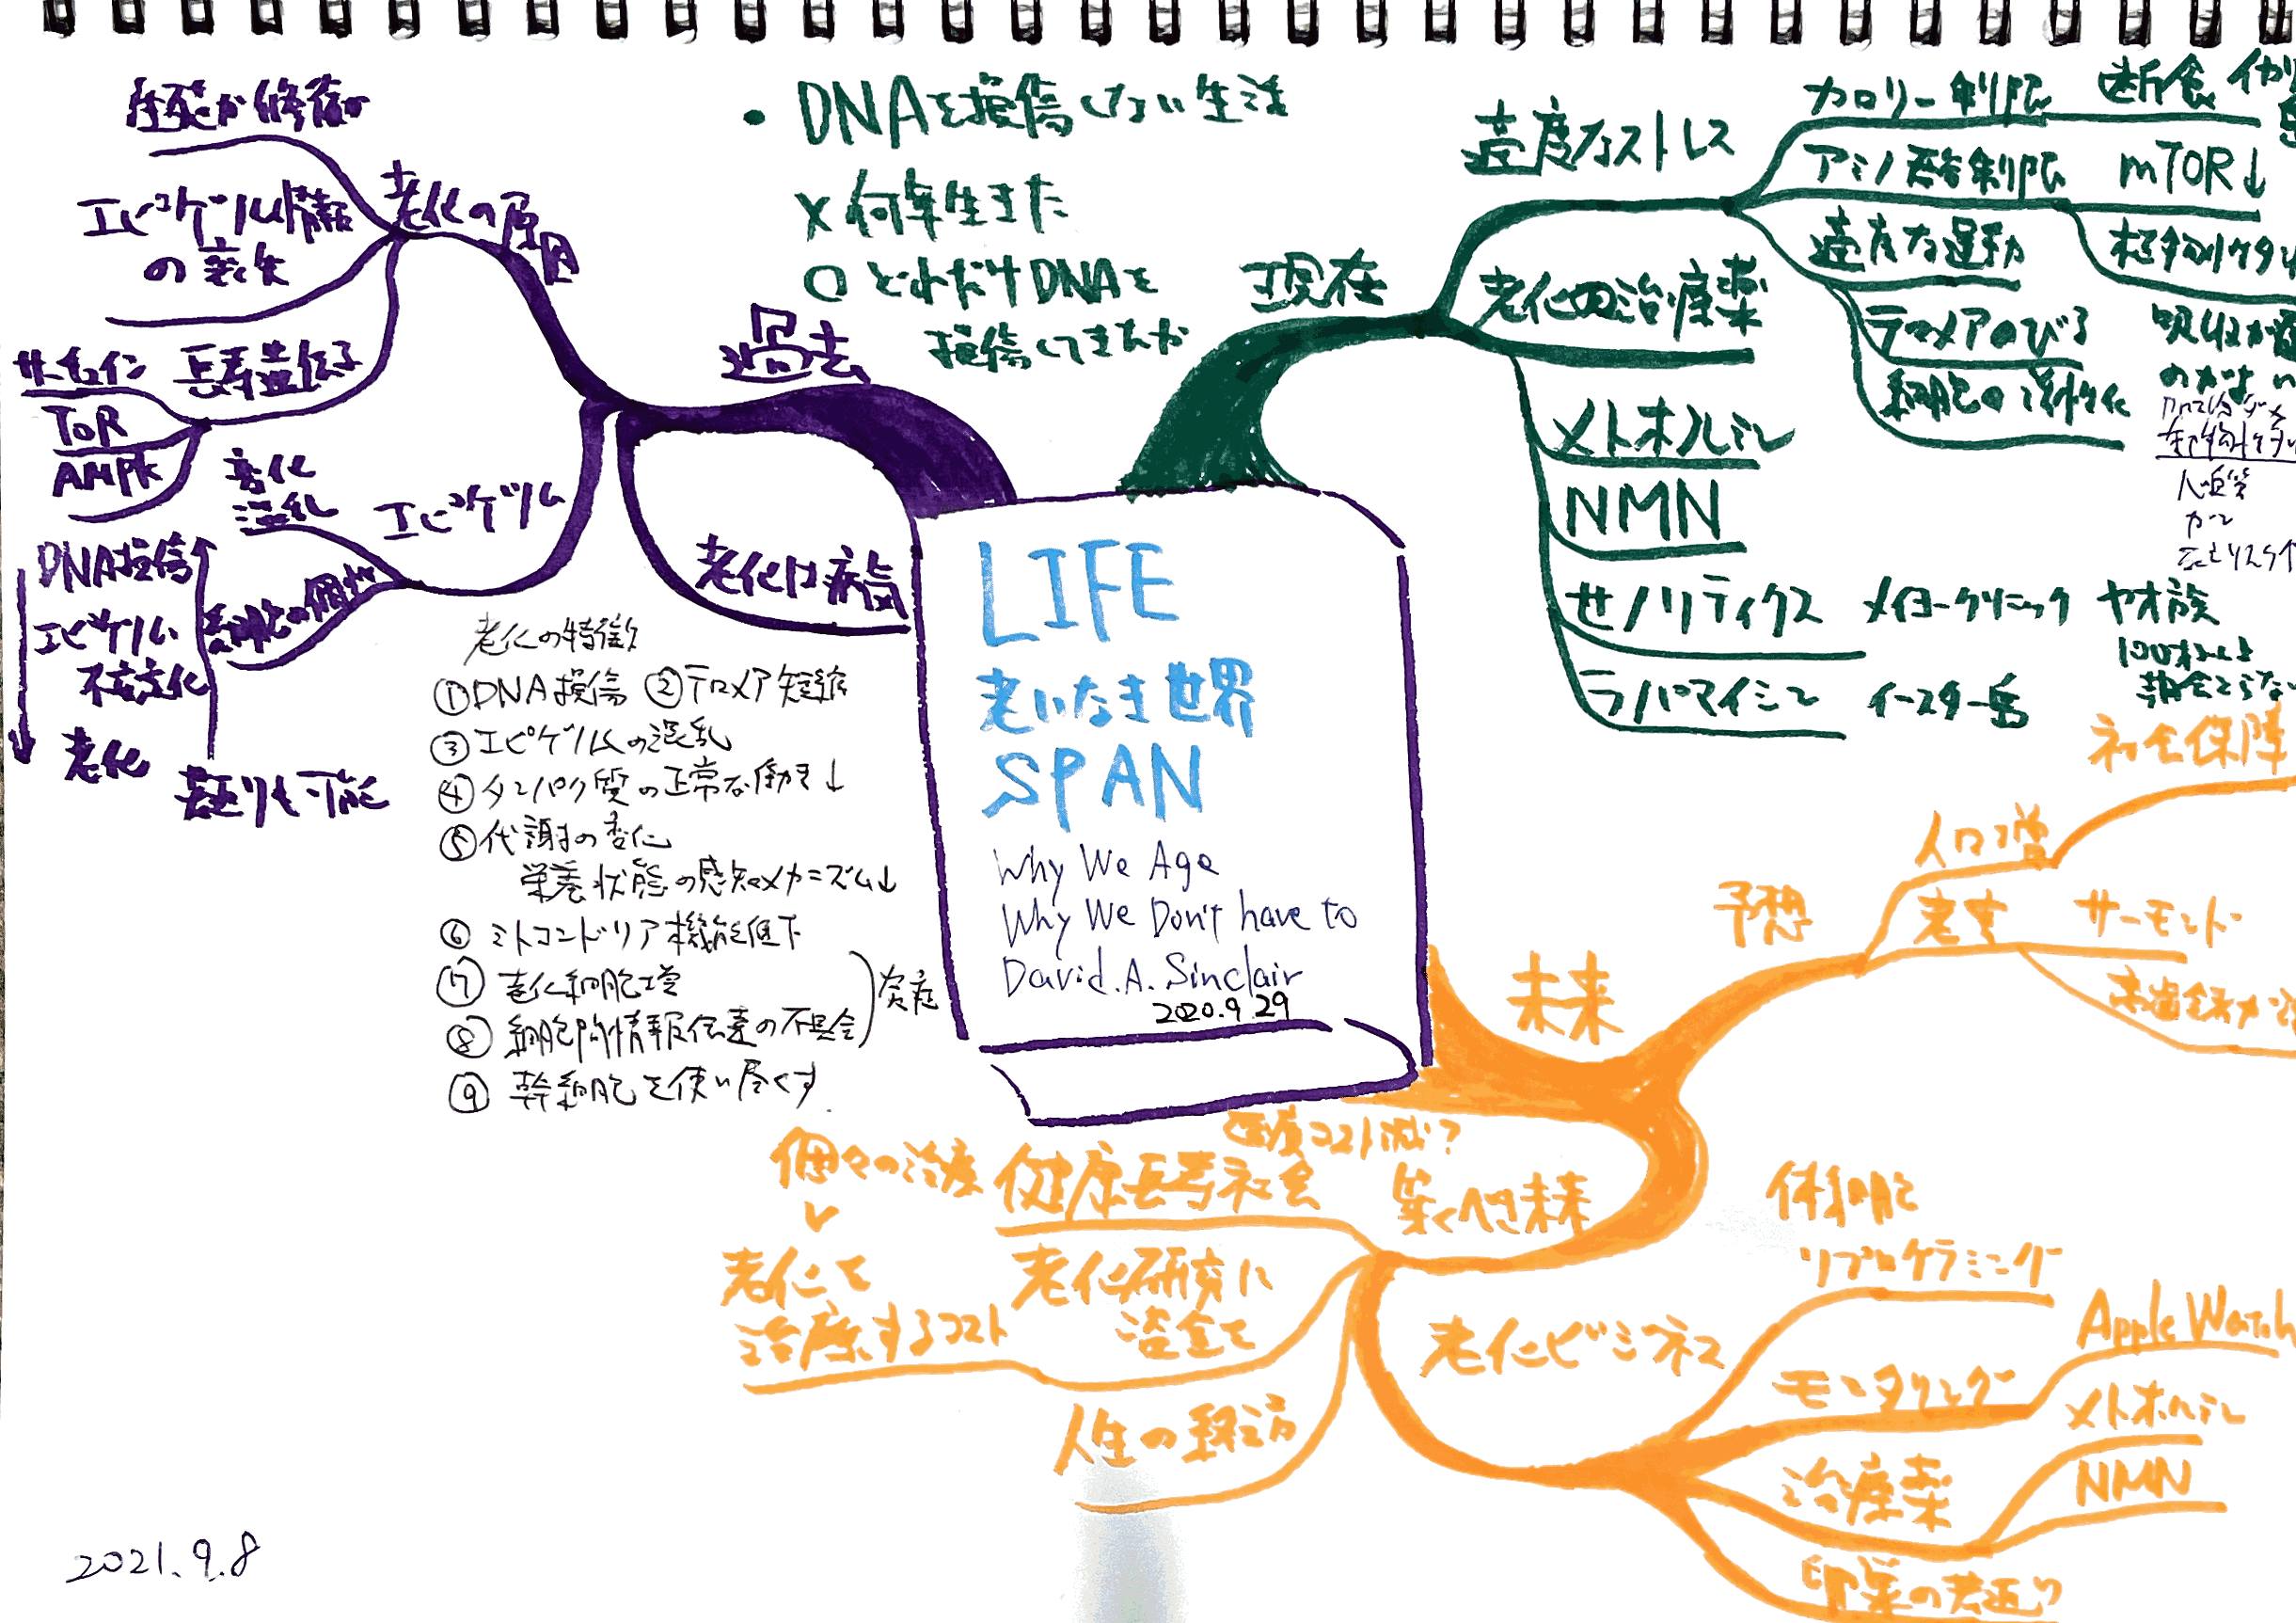 LIFE
老いなき世界
SPAN
Why We Age
Why We Don't have to
David.A. Sinclair
2020.9.29
過去
老化の原因
生殖か修復か
エピゲノム情報
の喪失
長寿遺伝子
サーチュイン
TOR
AMPK
エピゲノム
変化
混乱
細胞の個性
DNA損傷
エピゲノム
不安定化
老化
若返りも可能
老化は病気
老化の特徴
①DNA損傷 ②テロメア短縮
③エピゲノムの混乱
④タンパク質の正常な働き↓
⑤代謝の変化
栄養状態の感知メカニズム↓
⑥ミトコンドリア機能低下
⑦老化細胞増
⑧細胞間情報伝達の不具合
炎症
⑨幹細胞を使い尽くす
・DNAを損傷しない生活
×何年生きた
○どれだけDNAを
損傷してきたか
現在
適度なストレス
カロリー制限
断食
アミノ酸制限
mTOR↓
適度な運動
テロメアのびる
細胞の活性化
老化の治療薬
メトホルミン
NMN
セノリティクス メイヨークリニック
ラパマイシン イースター島
ヤオ族
100才以上
未来
予想
人口増
社会保障
老害
サーモンド
築くべき未来
医療コスト減?
健康長寿社会
個々の治療
↓
老化を
治療するコスト
老化研究に
資金を
人生の終え方
老化ビジネス
体細胞
リプログラミング
モニタリング
Apple Watch
治療薬
メトホルミン
NMN
卵巣の若返り
2021.9.8